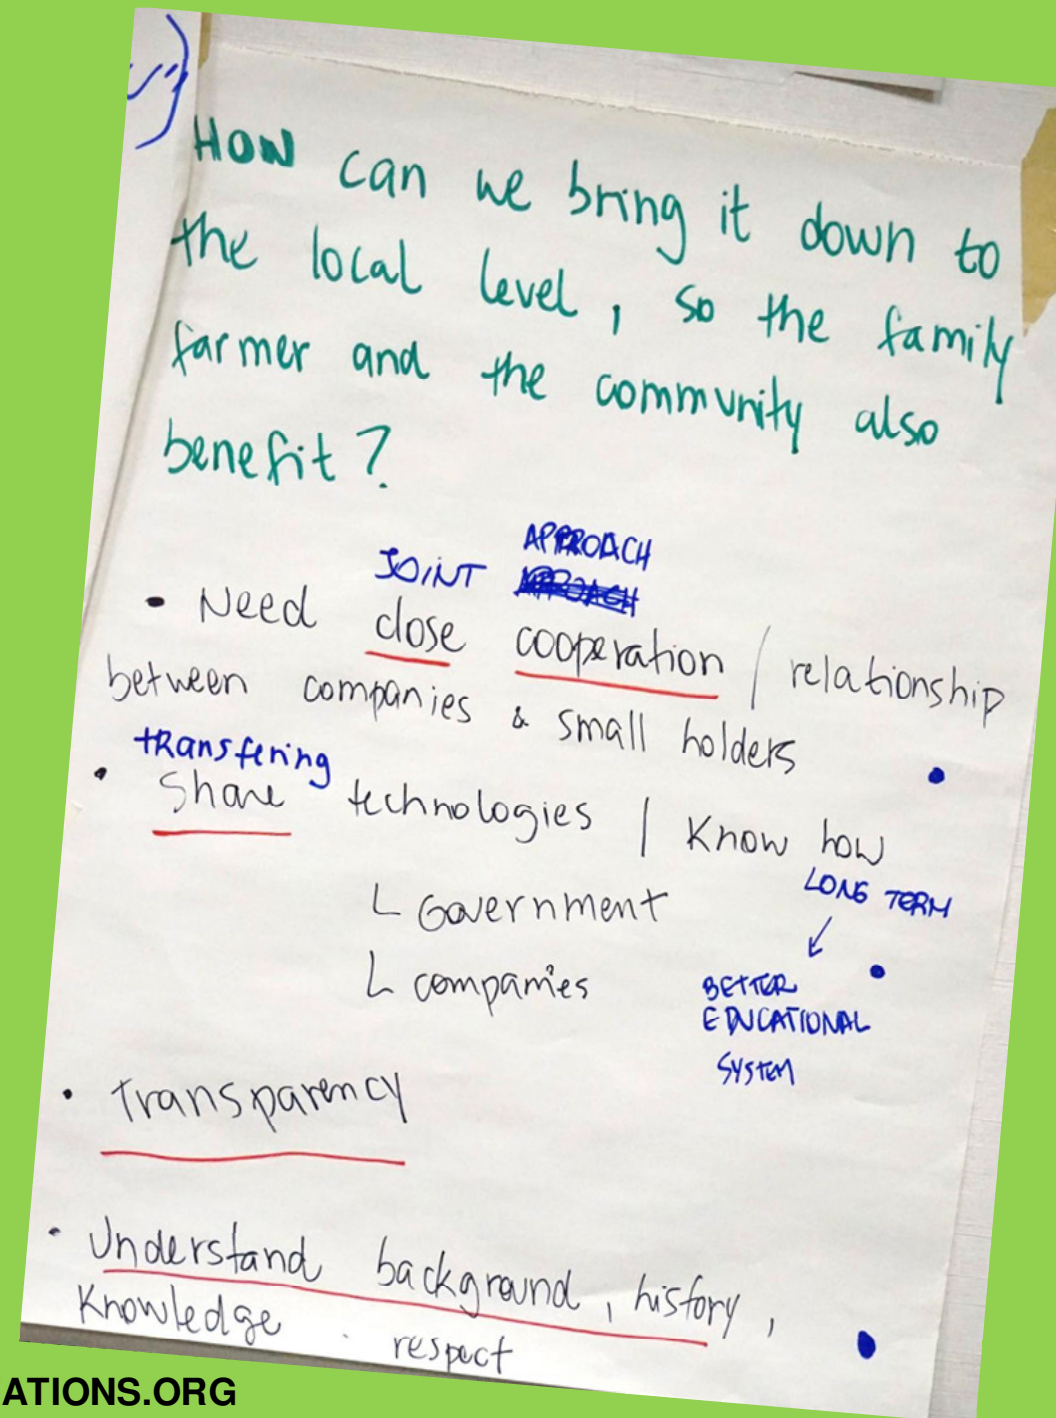 HOW can we bring it down to
the local level, so the family
farmer and the community also
benefit?
APPROACH
JOINT
• Need close cooperation / relationship
between companies & small holders
transfering
• Share technologies / Know how
LONG TERM
↙
L Government
L companies
BETTER
EDUCATIONAL
SYSTEM
• Transparency
• Understand background, history,
Knowledge . respect
ATIONS.ORG